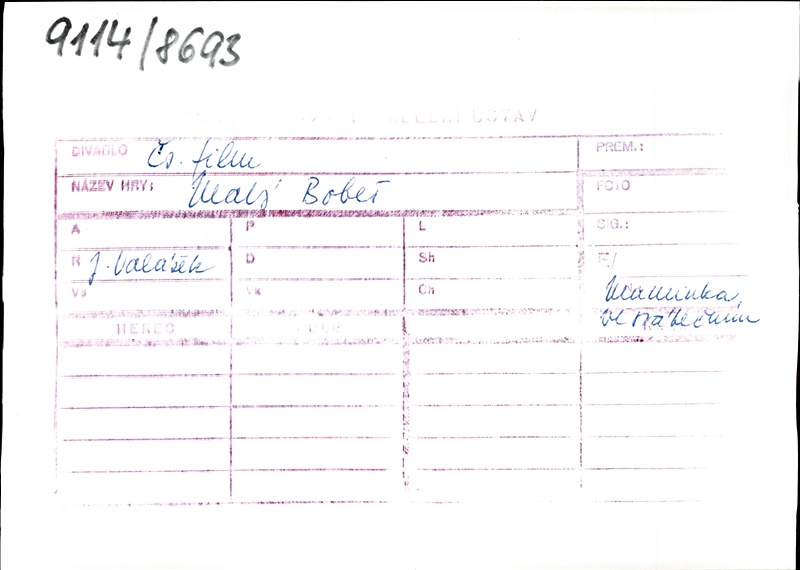 9114/8693
ÚSTAV
DIVADLO Čs. film PREM.:
NÁZEV HRY: Malý Bobeš FOTO
A P L SIG.:
R J. Valášek D Sh
Vs Vk Ch Maminka,
HEREC